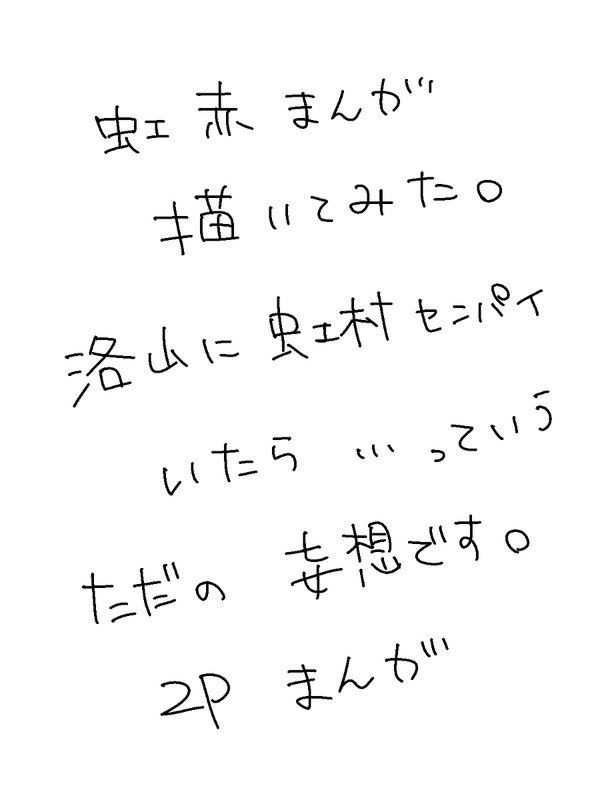 虹赤まんが
描いてみた。
洛山に虹村センパイ
いたら…っていう
ただの妄想です。
2P まんが